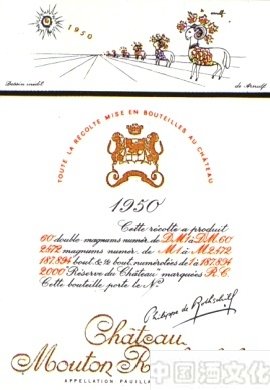 1950
Dessin inédit
de Arnulf
TOUTE LA RÉCOLTE MISE EN BOUTEILLES AU CHÂTEAU
1950
Cette récolte a produit
60 double-magnums numér. de D.M.1 à D.M.60
2.572 magnums numér. de M.1 à M.2.572
187.894 bout. & ½ bout. numérotées de 1 à 187.894
2.000 "Réserve du Château" marquées R.C.
Cette bouteille porte le N°
Philippe de Rothschild
Château
Mouton
APPELLATION
中国酒文化